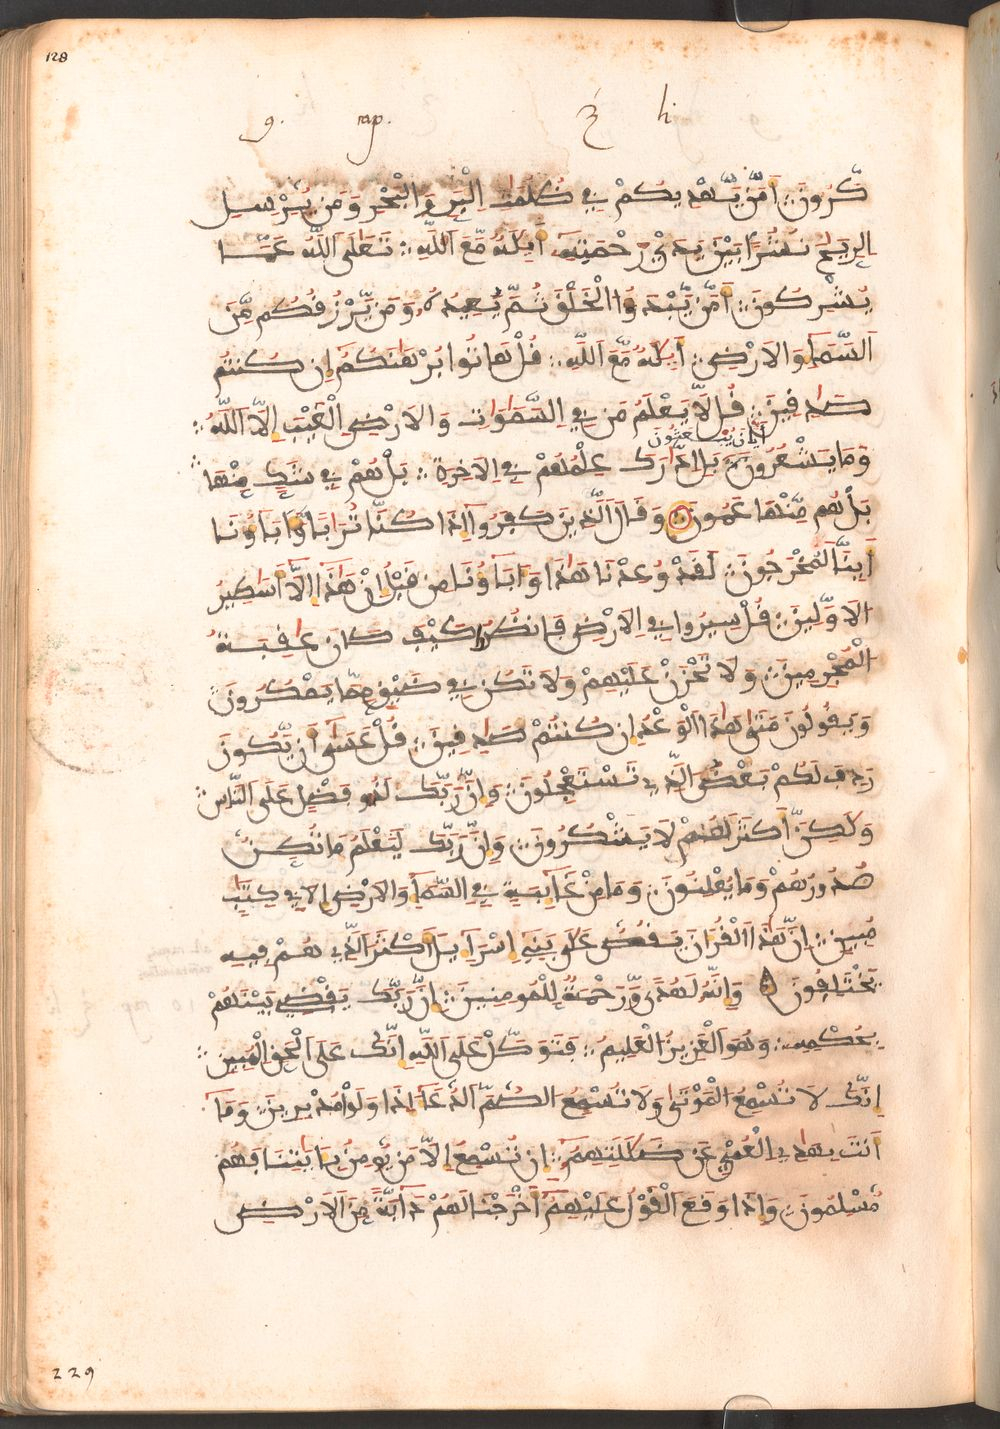 128
9. rap. h
كَّرُونَ ۞ اَمَّنْ يَّهْدِيكُمْ فِي ظُلُمَٰتِ اِلْبَرِّ وَالْبَحْرِ وَمَن يُّرْسِلُ
اُلرِّيَٰحَ نُشُراً بَيْنَ يَدَيْ رَحْمَتِهِ أَ۟لَٰهٌ مَّعَ اَللَّهِ ۞ تَعَٰلَى اَللَّهُ عَمَّا
يُشْرِكُونَ ۞ أَمَّنْ يَّبْدَؤُا اُلْخَلْقَ ثُمَّ يُعِيدُهُ وَمَن يَّرْزُقُكُم مِّنَ
اَلسَّمَآءِ وَالَارْضِ ۞ أَ۟لَٰهٌ مَّعَ اَللَّهِ ۞ قُلْ هَاتُوا بُرْهَٰنَكُمُ إِن كُنتُمْ
صَٰدِقِينَ ۞ قُل لَّا يَعْلَمُ مَن فِي اِلسَّمَٰوَٰتِ وَالَارْضِ اِلْغَيْبَ إِلَّا اَللَّهُ ۞
أَيَّانَ يُبْعَثُونَ
وَمَا يَشْعُرُونَ بَلِ اِدَّٰرَكَ عِلْمُهُمْ فِي اِلَاخِرَةِ ۞ بَلْ هُمْ فِي شَكٍّ مِّنْهَا ۞
بَلْ هُم مِّنْهَا عَمُونَ ۞ وَقَالَ اَلَّذِينَ كَفَرُوا إِذَا كُنَّا تُرَاباً وَءَابَآؤُنَا
أَ۟ينَّا لَمُخْرَجُونَ ۞ لَقَدْ وُعِدْنَا هَٰذَا وَءَابَآؤُنَا مِن قَبْلُ إِنْ هَٰذَا إِلَّا أَسَٰطِيرُ
الَاوَّلِينَ ۞ قُلْ سِيرُوا فِي اِلَارْضِ فَانظُرُوا كَيْفَ كَانَ عَٰقِبَةُ
اُلْمُجْرِمِينَ ۞ وَلَا تَحْزَنْ عَلَيْهِمْ وَلَا تَكُن فِي ضَيْقٍ مِّمَّا يَمْكُرُونَ ۞
وَيَقُولُونَ مَتَىٰ هَٰذَا اَلْوَعْدُ إِن كُنتُمْ صَٰدِقِينَ ۞ قُلْ عَسَىٰ أَن يَّكُونَ
رَدِفَ لَكُم بَعْضُ الَّذِي تَسْتَعْجِلُونَ ۞ وَإِنَّ رَبَّكَ لَذُو فَضْلٍ عَلَى اَلنَّاسِ ۞
وَلَٰكِنَّ أَكْثَرَهُمْ لَا يَشْكُرُونَ ۞ وَإِنَّ رَبَّكَ لَيَعْلَمُ مَا تُكِنُّ
صُدُورُهُمْ وَمَا يُعْلِنُونَ ۞ وَمَا مِنْ غَآئِبَةٍ فِي اِلسَّمَآءِ وَالَارْضِ إِلَّا فِي كِتَٰبٍ
مُّبِينٍ ۞ إِنَّ هَٰذَا اَلْقُرْءَانَ يَقُصُّ عَلَىٰ بَنِي إِسْرَآءِيلَ أَكْثَرَ اَلَّذِي هُمْ فِيهِ
يَخْتَلِفُونَ وَإِنَّهُ لَهُدًى وَّرَحْمَةٌ لِّلْمُومِنِينَ ۞ إِنَّ رَبَّكَ يَقْضِي بَيْنَهُمْ
بِحُكْمِهِ ۞ وَهُوَ اَلْعَزِيزُ الْعَلِيمُ ۞ فَتَوَكَّلْ عَلَى اَللَّهِ إِنَّكَ عَلَى اَلْحَقِّ اِلْمُبِينِ ۞
إِنَّكَ لَا تُسْمِعُ الْمَوْتَىٰ وَلَا تُسْمِعُ الصُّمَّ اَلدُّعَآءَ اِذَا وَلَّوْا مُدْبِرِينَ ۞ وَمَآ
أَنتَ بِهَٰدِي اِلْعُمْيِ عَن ضَلَٰلَتِهِمُ ۞ إِن تُسْمِعُ إِلَّا مَن يُّومِنُ بِـَٔايَٰتِنَا فَهُم
مُّسْلِمُونَ ۞ وَإِذَا وَقَعَ اَلْقَوْلُ عَلَيْهِمُ أَخْرَجْنَا لَهُمْ دَآبَّةً مِّنَ اَلَارْضِ
229